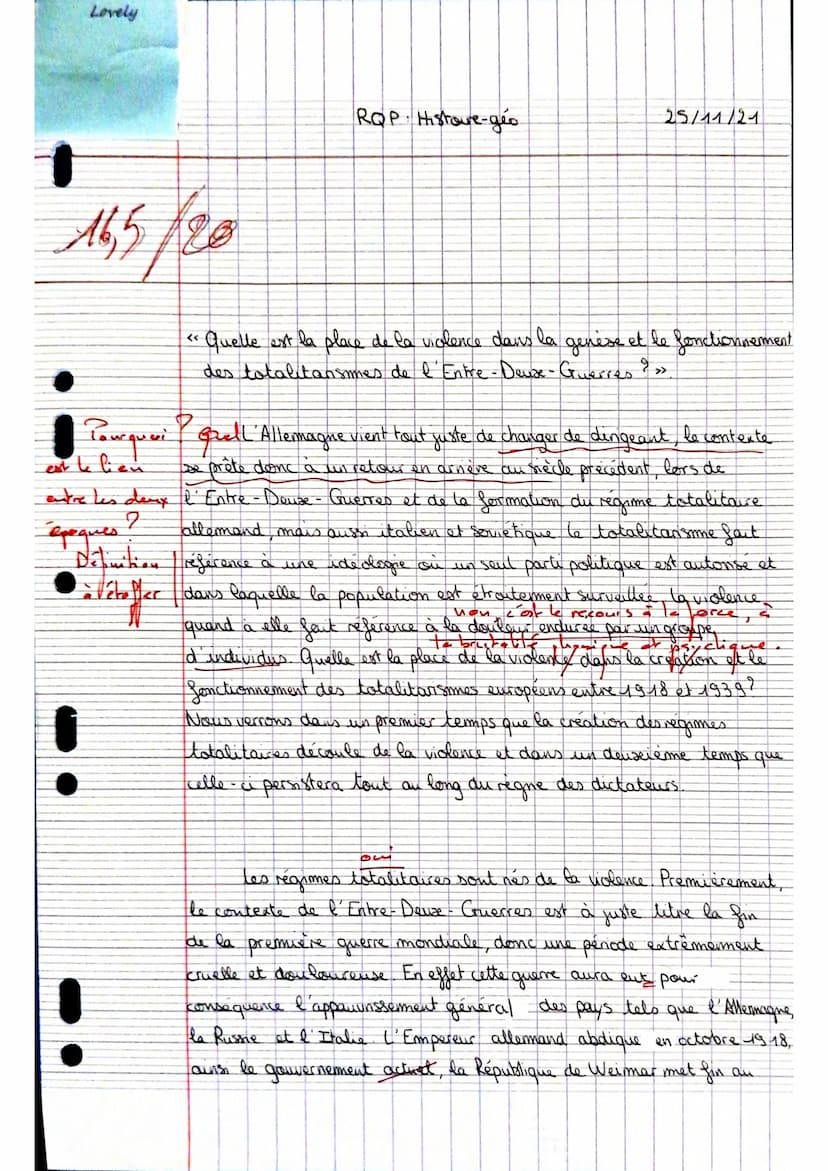 Lovely
RQP : Histoire-géo 25/11/21
16,5/20
« Quelle est la place de la violence dans la genèse et le fonctionnement
des totalitarismes de l'Entre-Deux-Guerres ? »
Pourquoi ? Quel L'Allemagne vient tout juste de changer de dirigeant, le contexte
est le lien se prête donc à un retour en arrière au siècle précédent, lors de
entre les deux l'Entre-Deux-Guerres et de la formation du régime totalitaire
époques ? allemand, mais aussi italien et soviétique le totalitarisme fait
Définition référence à une idéologie où un seul parti politique est autorisé et
à étoffer dans laquelle la population est étroitement surveillée, la violence,
non, c'est le recours à la force, à
quand à elle fait référence à la douleur endurée par un groupe
la brutalité physique et psychique.
d'individus. Quelle est la place de la violence dans la création et le
fonctionnement des totalitarismes européens entre 1918 et 1939?
Nous verrons dans un premier temps que la création des régimes
totalitaires découle de la violence et dans un deuxième temps que
celle-ci persistera tout au long du règne des dictateurs.
oui
Les régimes totalitaires sont nés de la violence. Premièrement,
le contexte de l'Entre-Deux-Guerres est à juste titre la fin
de la première guerre mondiale, donc une période extrêmement
cruelle et douloureuse. En effet cette guerre aura eut pour
conséquence l'appauvrissement général des pays tels que l'Allemagne,
la Russie et l'Italie. L'Empereur allemand abdique en octobre 1918,
ainsi le gouvernement actuel, la République de Weimar met fin au